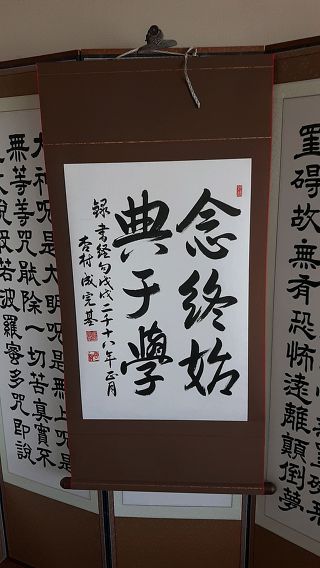 罣碍故無有恐怖遠離顛倒夢
念終始
典于學
錄書經句戊戌二千十八年正月
杏村 成完基
大神呪是大明呪是無上呪是
無等等呪能除一切苦真實不
說般若波羅蜜多呪即說